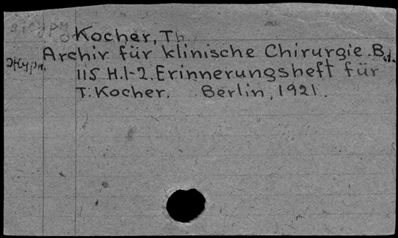 Kocher, Th.
Archiv für klinische Chirurgie. Bd.
Журн. 115 H.1-2. Erinnerungsheft für
T. Kocher. Berlin, 1921.